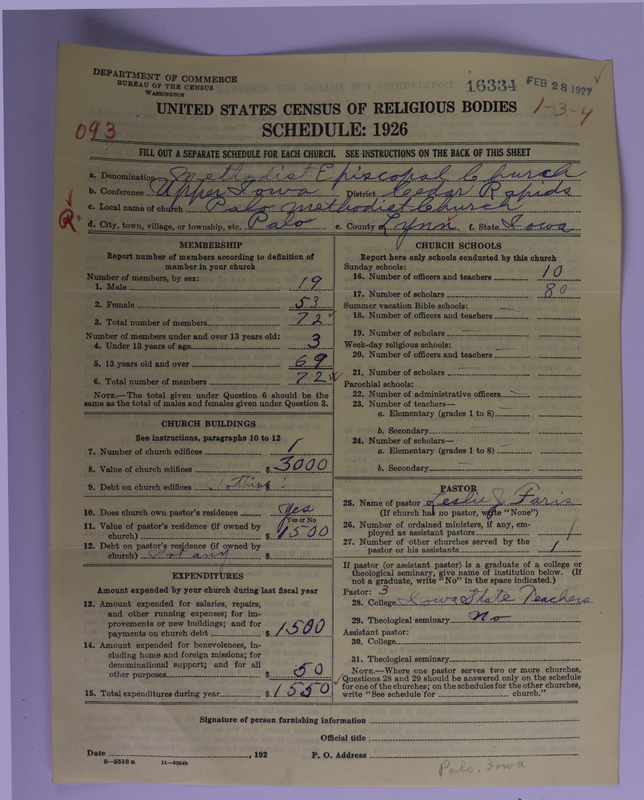 DEPARTMENT OF COMMERCE
BUREAU OF THE CENSUS
WASHINGTON
16334 FEB 28 1927
1-3-4
UNITED STATES CENSUS OF RELIGIOUS BODIES
093
SCHEDULE: 1926
FILL OUT A SEPARATE SCHEDULE FOR EACH CHURCH. SEE INSTRUCTIONS ON THE BACK OF THIS SHEET
a. Denomination Methodist Episcopal Church
b. Conference Upper Iowa District Cedar Rapids
c. Local name of church Palo Methodist Church
R.
d. City, town, village, or township, etc. Palo e. County Lynn f. State Iowa
MEMBERSHIP
Report number of members according to definition of
member in your church
Number of members, by sex:
1. Male 19
2. Female 53
3. Total number of members 72
Number of members under and over 13 years old:
4. Under 13 years of age 3
5. 13 years old and over 69
6. Total number of members 72
NOTE.—The total given under Question 6 should be
same as the total of males and females given under Question 3.
CHURCH BUILDINGS
See instructions, paragraphs 10 to 12
7. Number of church edifices 1
8. Value of church edifices $ 3000
9. Debt on church edifices $
10. Does church own pastor's residence Yes
Yes or No
11. Value of pastor's residence (if owned by
church) $ 1500
12. Debt on pastor's residence (if owned by
church) Not any $
EXPENDITURES
Amount expended by your church during last fiscal year
13. Amount expended for salaries, repairs,
and other running expenses; for im-
provements or new buildings; and for
payments on church debt $ 1500
14. Amount expended for benevolences, in-
cluding home and foreign missions; for
denominational support; and for all
other purposes $ 50
15. Total expenditures during year $ 1550
CHURCH SCHOOLS
Report here only schools conducted by this church
Sunday schools:
16. Number of officers and teachers 10
17. Number of scholars 80
Summer vacation Bible schools:
18. Number of officers and teachers
19. Number of scholars
Week-day religious schools:
20. Number of officers and teachers
21. Number of scholars
Parochial schools:
22. Number of administrative officers
23. Number of teachers—
a. Elementary (grades 1 to 8)
b. Secondary
24. Number of scholars—
a. Elementary (grades 1 to 8)
b. Secondary
PASTOR
25. Name of pastor Leslie J Faris
(If church has no pastor, write "None")
26. Number of ordained ministers, if any, em-
ployed as assistant pastors /
27. Number of other churches served by the
pastor or his assistants 1
If pastor (or assistant pastor) is a graduate of a college or
theological seminary, give name of institution below. (If
not a graduate, write "No" in the space indicated.)
Pastor: 3
28. College Iowa State Teachers
29. Theological seminary No
Assistant pastor:
30. College
31. Theological seminary
NOTE.—Where one pastor serves two or more churches,
Questions 28 and 29 should be answered only on the schedule
for one of the churches; on the schedules for the other churches,
write "See schedule for church."
Signature of person furnishing information
Official title
Date , 192 P. O. Address
8—5518 a 11—9204b
Palo, Iowa